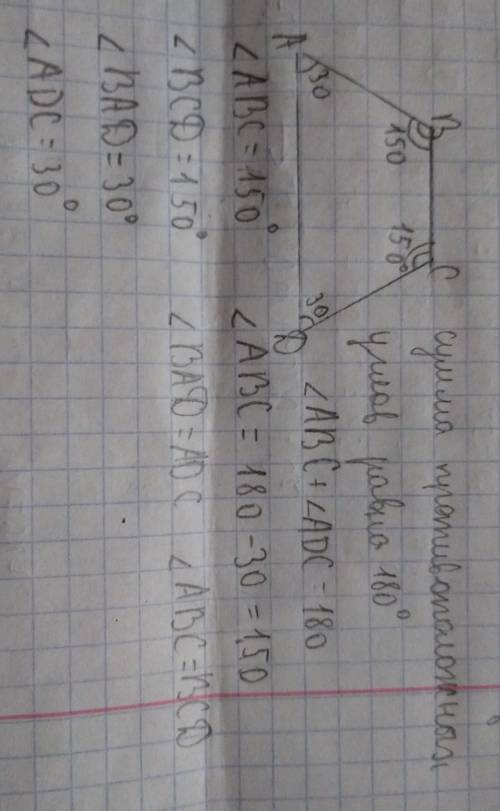 B
C
150
150°
A
30
30
D
сумма противоположных
углов равна 180°
∠ABC + ∠ADC = 180
∠ABC = 150°
∠ABC = 180 - 30 = 150
∠BCD = 150°
∠BAD = ADC ∠ABC = BCD
∠BAD = 30°
∠ADC = 30°